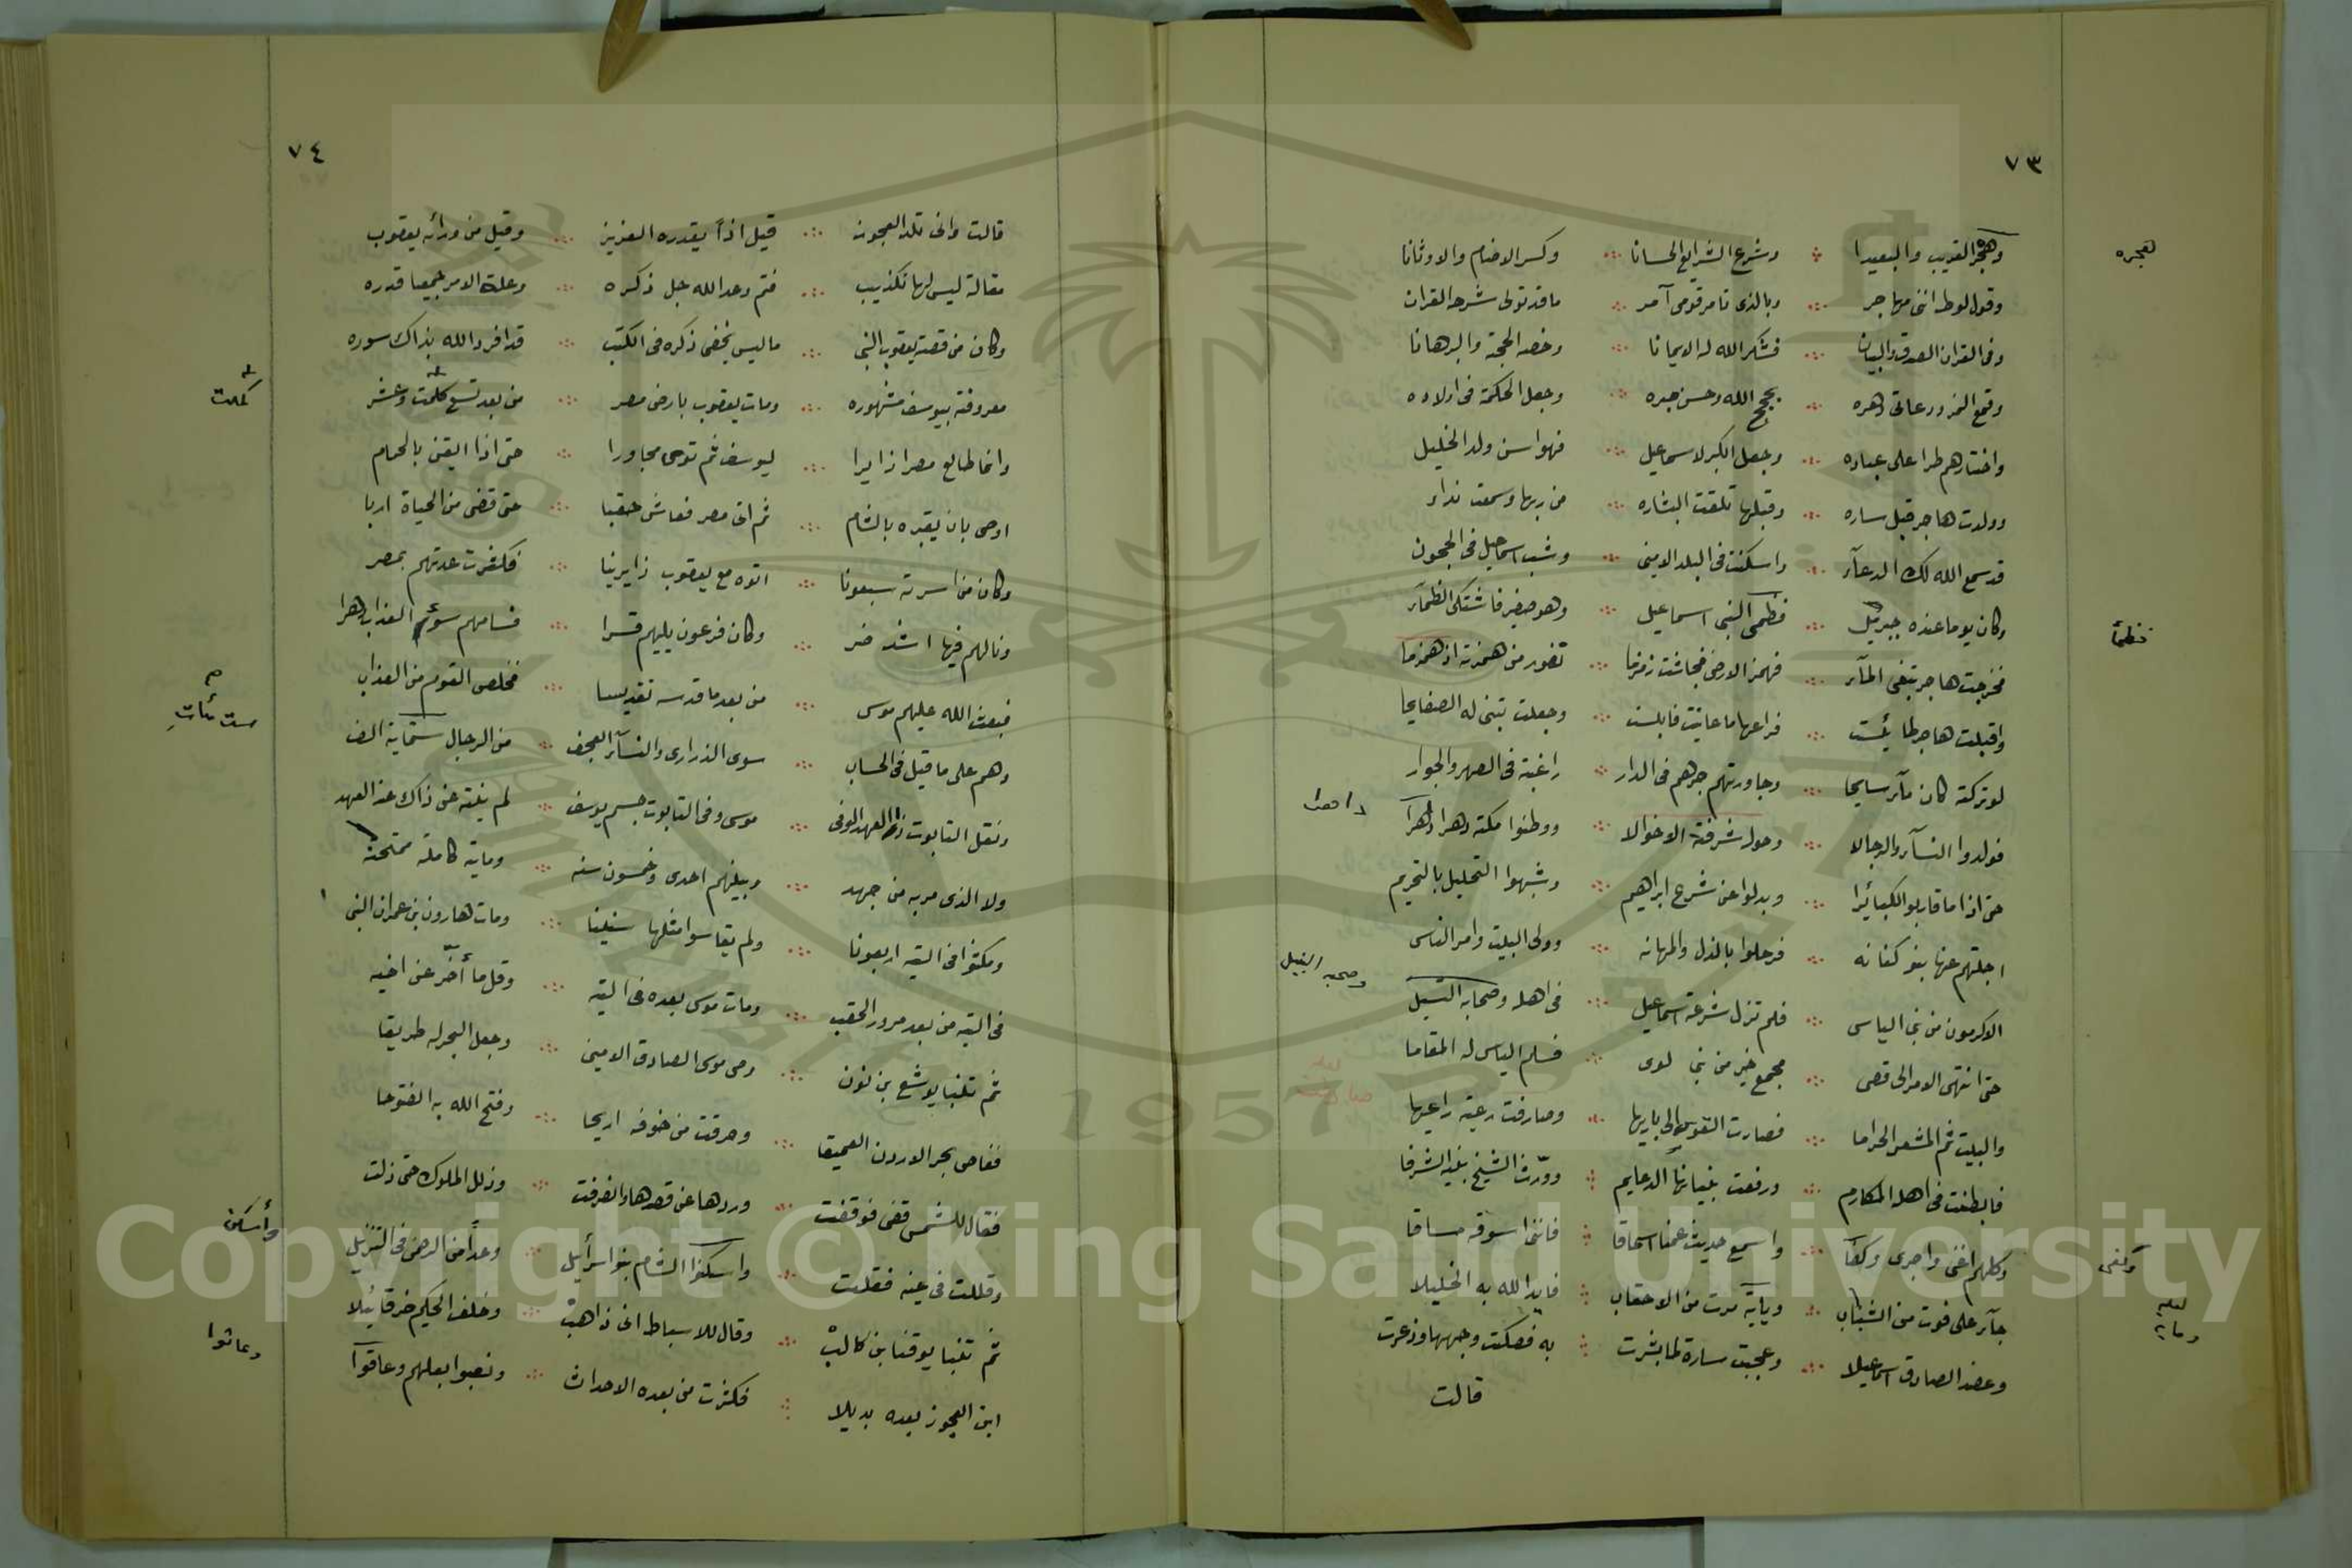 ٧٣
وهجر القريب والبعيدا ∴ وشرع الشرايع الحسانا ∴ وكسر الاصنام والاوثانا
هجره
وقول لوط انني مهاجر ∴ وبالذي تامر قومي آمر ∴ ما قد تولى شرحه القران
وفى القران الصدق والبيان ∴ فشكر الله له الايمانا ∴ وخصه الحجة والبرهانا
وقمع النمرود عاتى دهره ∴ بحجج الله وحسن صبره ∴ وجعل الحكمة فى اولاده
واختارهم طرا على عباده ∴ وجعل الكبر لاسماعيل ∴ فهو اسن ولد الخليل
وولدت هاجر قبل ساره ∴ وقبلها تلقت البشاره ∴ من ربها وسمعت نداء
قد سمع الله لك الدعآء ∴ واسكنت فى البلد الامين ∴ وشب اسماعيل فى الحجون
وكان يوما عنده جبريل ∴ فظمى النبى اسماعيل ∴ وهو صغير فاشتكى الظمآء
فظمأ
فخرجت هاجر تبغى المآء ∴ فهمز الارض فجاشت زمزما ∴ تفور من همزته اذ همزما
واقبلت هاجر لما يئست ∴ فراعها ما عاينت فابلست ∴ وجعلت تبنى له الصفايحا
لو تركته كان مآء سايحا ∴ وجاورتهم جرهم فى الدار ∴ راغبة فى الصهر والجوار
فولدوا النسآء والرجالا ∴ وحول شرفة الاخوالا ∴ ووطنوا مكة دهرا دهرآ
حتى اذا ما قاربوا الكبائرا ∴ وبدلوا من شرع ابراهيم ∴ وشبهوا التحليل بالتحريم
اجلتهم عنها بنو كنانه ∴ فرحلوا بالذل والمهانه ∴ وولى البيت وامر الناس
الاكرمون من بنى الياس ∴ فلم تزل شرعة اسماعيل ∴ فى اهله وصحابه
حتى انتهى الامر الى قصى ∴ مجمع خير من بنى لوى ∴ فسلم الناس له المقاما
والبيت ثم المشعر الحراما ∴ فصارت القوس الى باريها ∴ وصارفت رعية راعيها
فابطنت فى اهله المكارم ∴ ورفعت بنيانها الدعايم ∴ وورّث الشيخ بنيه الشرفا
وكلهم اغنى واجرى وكفآ ∴ واسمع حديث عمنا اسحاقا ∴ فاننى اسوقه مساقا
وكفى
جآء على فوت من الشباب ∴ ومايّه مرت من الاحقاب ∴ فايد الله به الخليلا
وعضد الصادق اسماعيلا ∴ وعجبت سارة لما بشرت ∴ به فصكت وجهها وذعرت
قالت
٧٤
قالت وانى تلد العجوز ∴ قيل اذاً يقدره العزيز ∴ وقيل من ورائه يعقوب
مقالة ليس لها تكذيب ∴ فتم وعد الله جل ذكره ∴ وعلة الامر جميعا قدره
وكان من قصة يعقوب النبى ∴ ما ليس يخفى ذكره فى الكتب ∴ قد افرد الله بذاك سوره
معروفة بيوسف مشهوره ∴ ومات يعقوب بارض مصر ∴ من بعد تسع كلمت وعشر
كملت
وانما طالع مصرا زايرا ∴ ليوسف ثم توى مجاورا ∴ حتى اذا ايقن بالحمام
اوصى بان يقبره بالشام ∴ ثم اتى مصر فعاش حقبا ∴ حتى قضى من الحياة اربا
وكان من اسرته سبعونا ∴ اتوه مع يعقوب زايرينا ∴ فكثرت عدتهم بمصر
ونالهم فيها اشد ضر ∴ وكان فرعون يليهم قسرا ∴ فسامهم سوء العذاب دهرا
فبعث الله عليهم موسى ∴ من بعد ما قدسه تقديسا ∴ فخلص القوم من العذاب
وهم على ما قيل فى الحساب ∴ سوى الذرارى والنسآء العجف ∴ من الرجال ستماية الف
ست مئات
ونقل التابوت العهد الوفى ∴ موسى وفى التابوت جسم يوسف ∴ لم يثنه عن ذاك عند العهد
ولا الذى مر به من جهد ∴ وبينهم احدى وخمسون سنه ∴ وماية كاملة ممتحنه
ومكثوا فى التيه اربعونا ∴ ولم يقاسوا مثلها سنينا ∴ ومات هارون بن عمران النبى
فى التيه من بعد مرور الحقب ∴ ومات موسى بعده فى التيه ∴ وقل ما أخّر عن اخيه
ثم تلنبا يوشع بن نون ∴ وصى موسى الصادق الامين ∴ وجعل البحر له طريقا
فغاص بحر الاردن العميقا ∴ وحرقت من خوفه اريحا ∴ وفتح الله به الفتوحا
فقال للشمس قفى فوقفت ∴ وردها عن قصدها وانصرفت ∴ وذلل الملوك حتى ذلت
وقللت فى عينه فقلت ∴ واسكنوا الشام بنو اسرآئيل ∴ وعداً من الرحمن فى التنزيل
وأسكن
ثم تنبا يوقنا بن كالب ∴ وقال للاسباط انى ذاهب ∴ وخلف الحكيم حزقائيلا
ابن العجوز بعده بديلا ∴ فكثرت من بعده الاحداث ∴ ونصبوا بعلهم وعاقوآ
وعاثوا
Copyright © King Saud University
1957